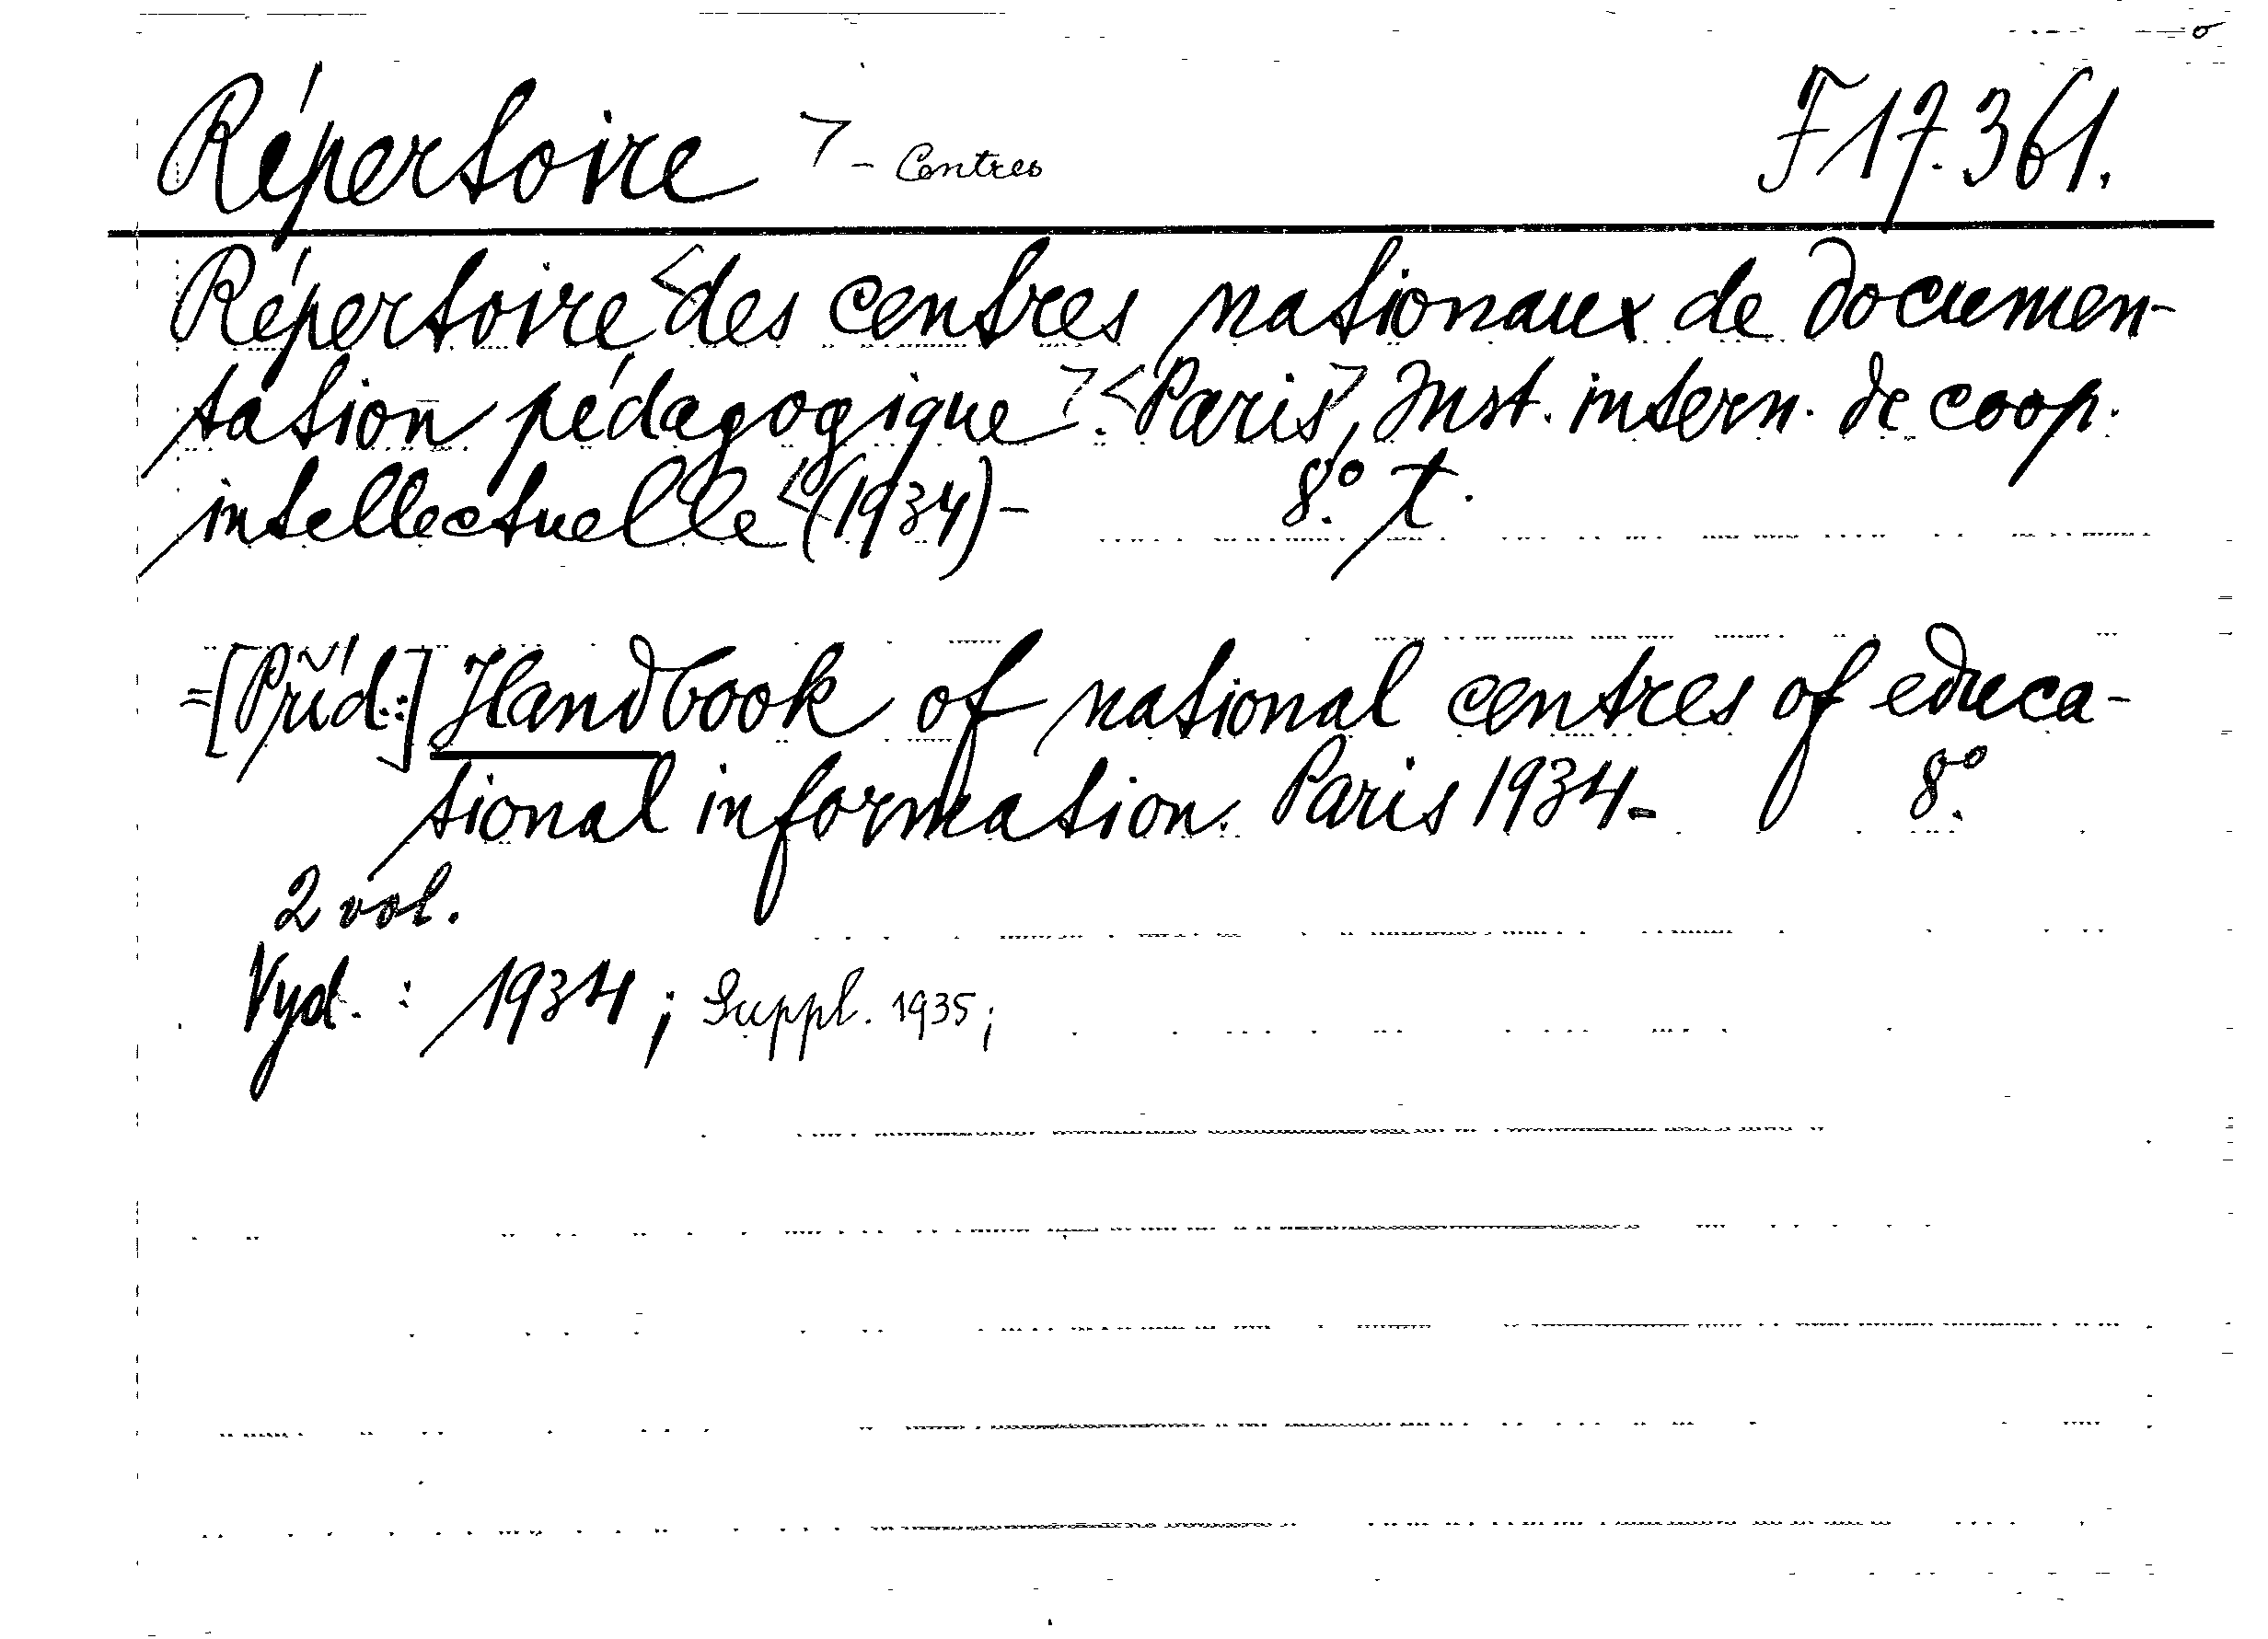 Répertoire > - Centres F 17.361.
Répertoire <des centres nationaux de documen-
tation pédagogique>. <Paris>, Inst. intern. de coop.
intellectuelle <(1934)- 8°. t.
=[Příd.:] Handbook of national centres of educa-
tional information. Paris 1934- 8°.
2 vol.
Vyd. : 1934 ; Suppl. 1935 ;